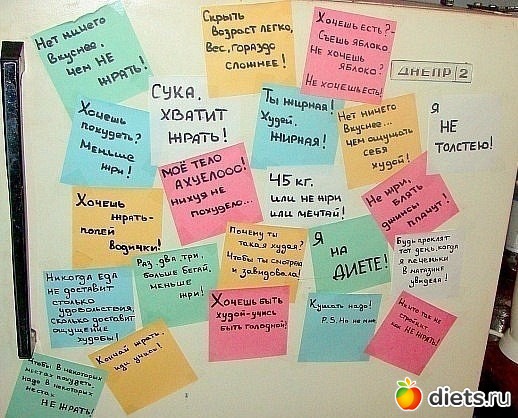 Нет ничего
вкуснее,
чем НЕ
ЖРАТЬ!
Скрыть
возраст легко,
вес, гораздо
сложнее!
Хочешь есть?-
Съешь яблоко.
Не хочешь
яблоко?
Не хочешь есть!
ДНЕПР 2
Хочешь
похудеть?
Меньше
жри!
СУКА,
ХВАТИТ
ЖРАТЬ!
Ты жирная!
Худей,
ЖИРНАЯ!
Нет ничего
Вкуснее...
чем ощущать
себя
худой!
Я
НЕ
ТОЛСТЕЮ!
Хочешь
жрать-
попей
водички!
МОЁ ТЕЛО
АХУЕЛООО!
нихуя не
похудело...
45 кг.
или не жри
или мечтай!
Не жри,
БЛЯТЬ
джинсы
плачут!
Никогда Еда
не доставит
столько
удовольствия,
сколько доставит
ощущение
худобы!
Раз, два, три,
больше бегай,
меньше
жри!
Почему ты
такая худая?
Чтобы ты смотрела
и завидовала!
Я
НА
ДИЕТЕ!
Будь проклят
тот день, когда
я печеньки
в магазине
увидела!
Хочешь быть
худой-учись
быть голодной!
Кушать надо!
P.S. Но не мне.
Ничто так не
стройнит,
как НЕ ЖРАТЬ!
Чтобы в некоторых
местах похудеть,
надо в некоторых
местах
НЕ ЖРАТЬ!
Кончай жрать,
иди учись!
diets.ru